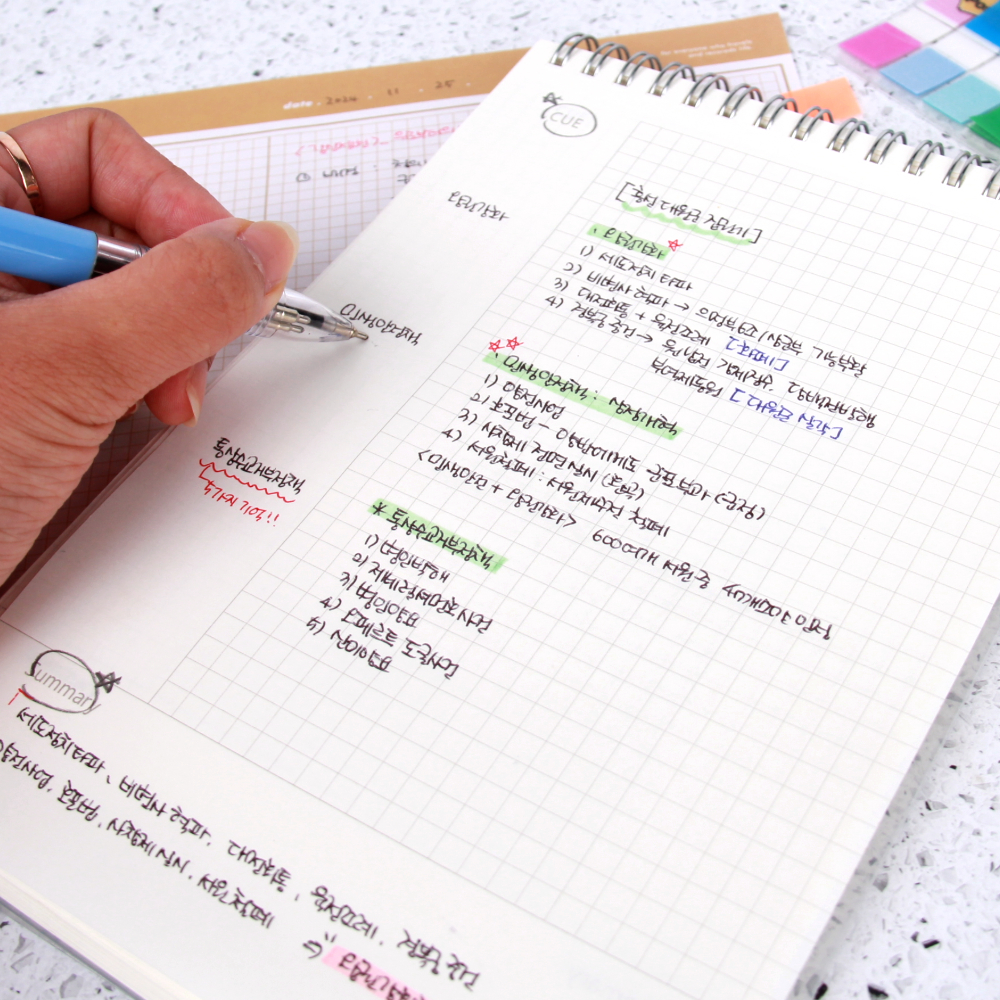 An everyone who travels
and records life.
date . 2024 . 11 . 25 .
CUE
[흥선 대원군 집권기]
왕권강화
· 왕권강화
1) 세도정치 타파
2) 비변사 혁파 → 의정부 강화 / 삼군부 기능부활
3) 대전회통 + 육전조례 [호패제]
4) 경복궁 중건 → 원납전 강제징수, 당백전발행
부역제동원 [대원군 실각]
민생안정책
· 민생안정책 : 삼정개혁
1) 양전사업
2) 호포법 - 양반에게도 군포부과 (군정)
3) 사창제 전면실시 (환곡)
4) 서원철폐 : 서원세우지 철폐
<민생안전 + 왕권강화> 600여개 서원 중 47개만 남김
통상수교거부정책
국가시기억!!
* 통상수교거부정책
1) 병인박해
2) 제너럴셔먼호사건
3) 병인양요
4) 오페르트 도굴사건
5) 신미양요
Summary
세도정치타파, 비변사 혁파, 대전회통, 육전조례, 경복궁 중건
양전사업, 호포법, 사창제실시, 서원철폐
⇒ "왕권강화